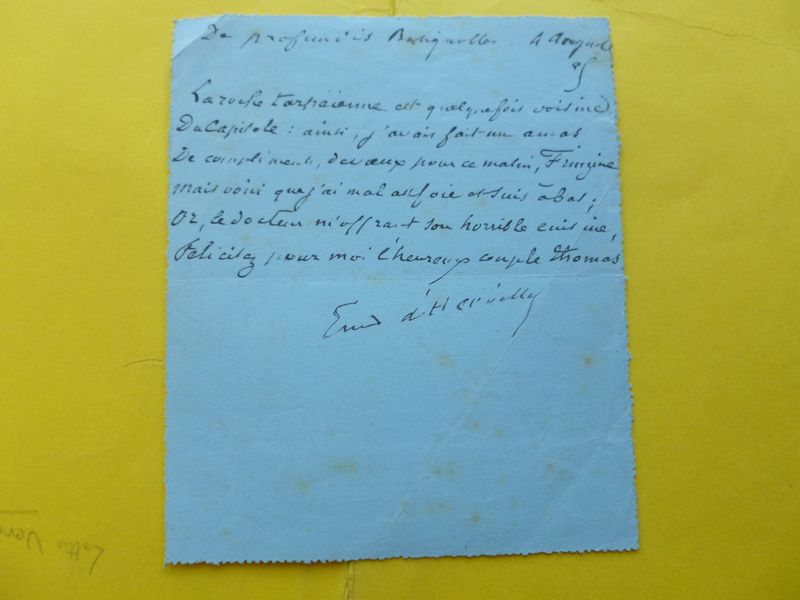 De profundis Batignolles. 4 Auguste
85
La roche tarpéienne est quelquefois voisine
Du Capitole : ainsi, j'avais fait un amas
De compliments, de vœux pour ce matin, Fringine
mais voici que j'ai mal au foie et suis à bas ;
Or, le docteur m'offrant son horrible cuisine,
Félicitez pour moi l'heureux couple Thomas
Ernest d'Hervilly
Lettre Vers